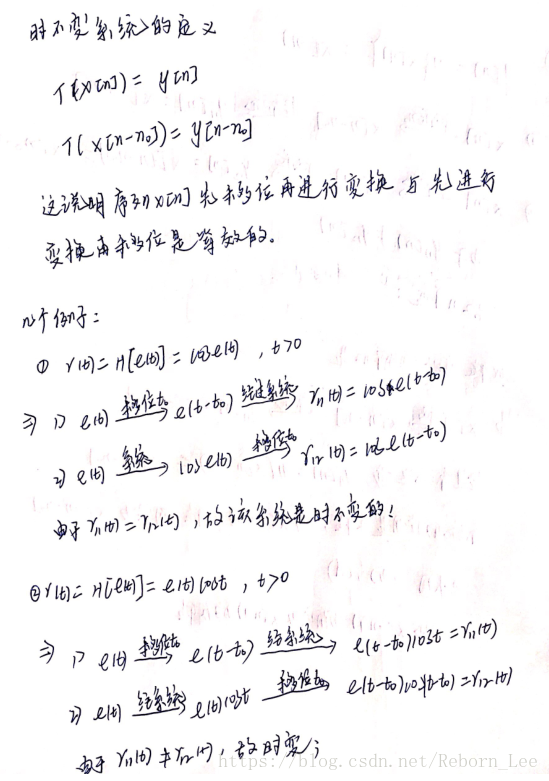 时不变系统的定义
T(x[n]) = y[n]
T(x[n-n₀]) = y[n-n₀]
这说明序列x[n]先移位再进行变换与先进行
变换再移位是等效的。
几个例子：
① r(t) = H[e(t)] = cos e(t) , t>0
⇒ 1) e(t) 移位t₀→ e(t-t₀) 经过系统→ r₁₁(t) = cos e(t-t₀)
2) e(t) 系统→ cos e(t) 移位t₀→ r₁₂(t) = cos e(t-t₀)
由于 r₁₁(t) = r₁₂(t) , 故该系统是时不变的!
② r(t) = H[e(t)] = e(t) cost , t>0
⇒ 1) e(t) 移位t₀→ e(t-t₀) 经系统→ e(t-t₀) cost = r₁₁(t)
2) e(t) 经系统→ e(t) cost 移位t₀→ e(t-t₀) cos(t-t₀) = r₁₂(t)
由于 r₁₁(t) ≠ r₁₂(t) , 故时变;
https://blog.csdn.net/Reborn_Lee